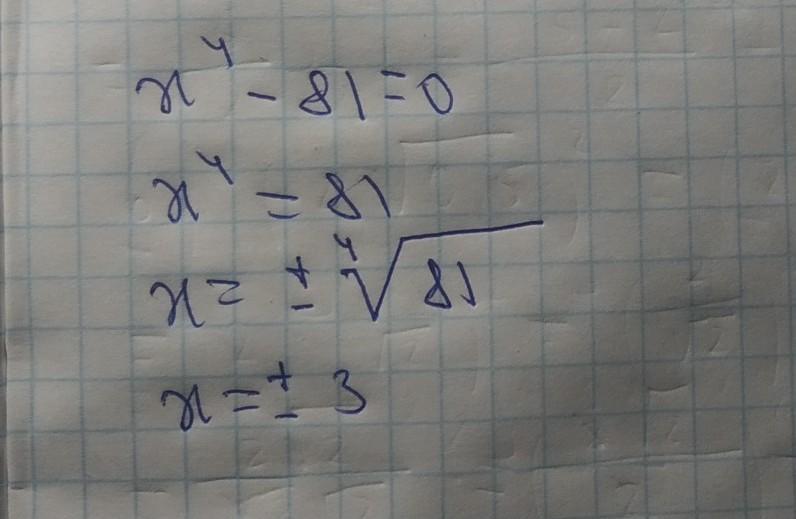 x⁴ - 81 = 0
x⁴ = 81
x = ± ⁴√81
x = ± 3